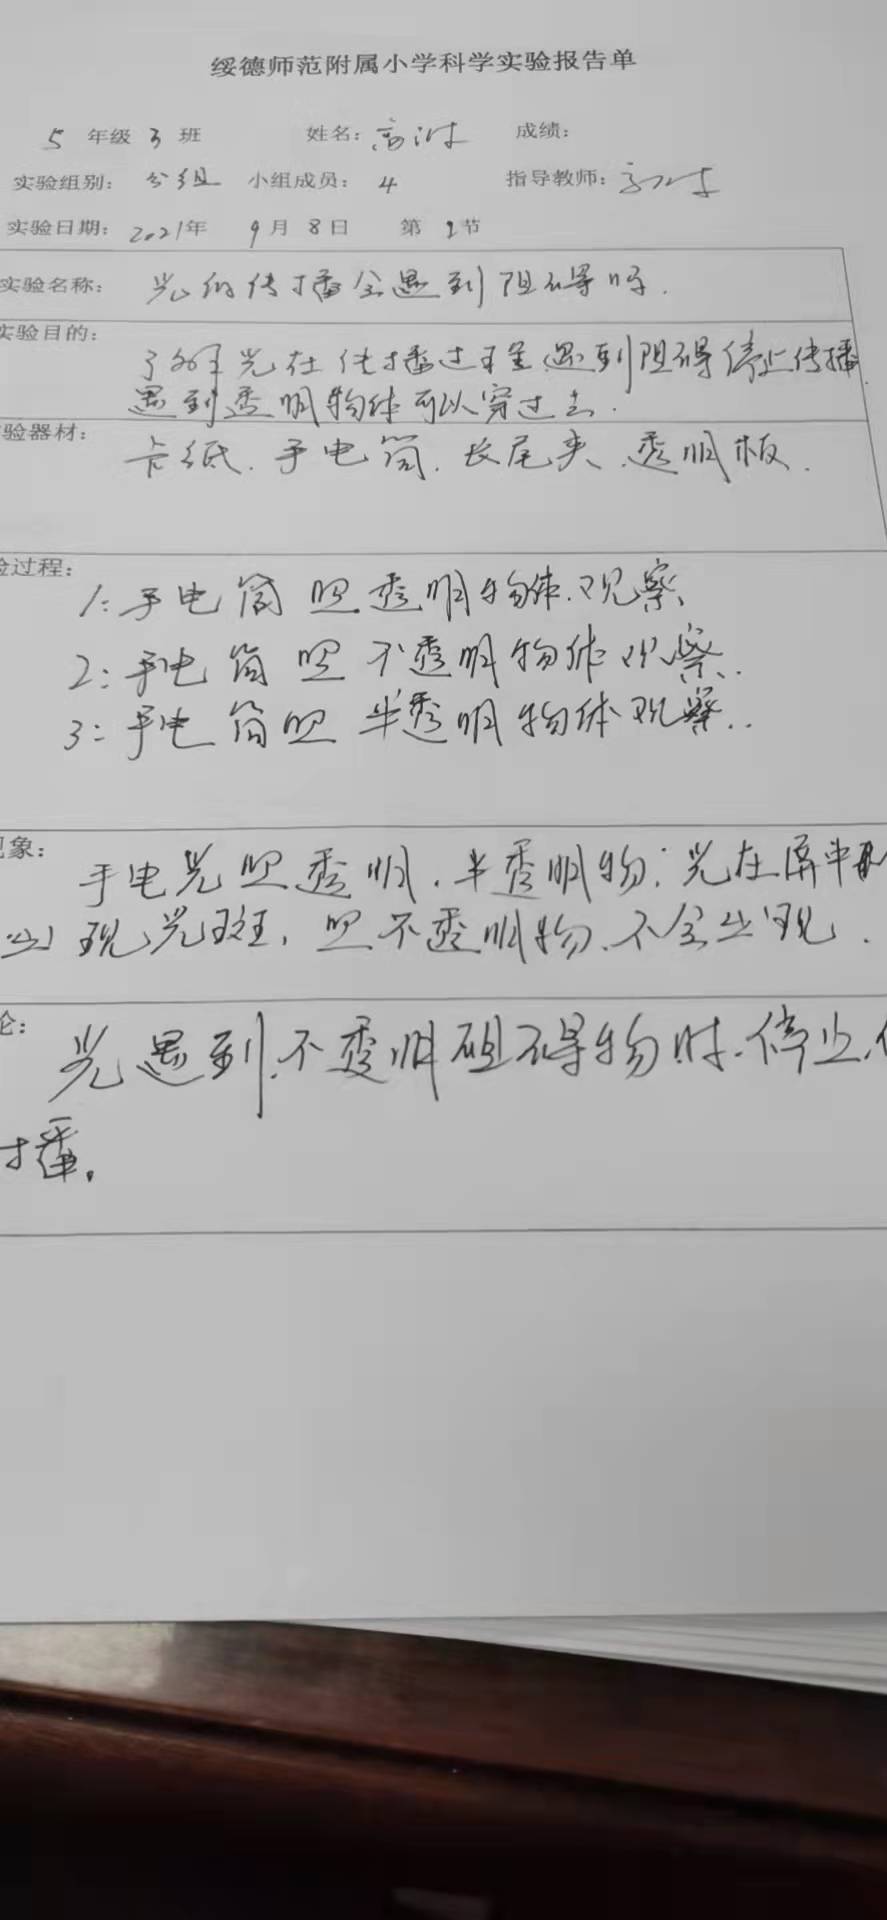 绥德师范附属小学科学实验报告单
5 年级 3 班 姓名： 成绩：
实验组别： 分组 小组成员： 4 指导教师：
实验日期： 2021年 9月 8日 第 2 节
实验名称： 光的传播会遇到阻碍吗.
实验目的：
了解光在传播过程遇到阻碍停止传播.
遇到透明物体可以穿过去.
验器材： 卡纸. 手电筒. 长尾夹. 透明板.
验过程：
1: 手电筒照透明物体.观察.
2: 手电筒照 不透明物体观察..
3: 手电筒照 半透明物体观察..
现象： 手电光照透明.半透明物: 光在屏中
出现光斑, 照不透明物.不会出现.
论：
光遇到.不透明阻碍物时.停止.传
播.